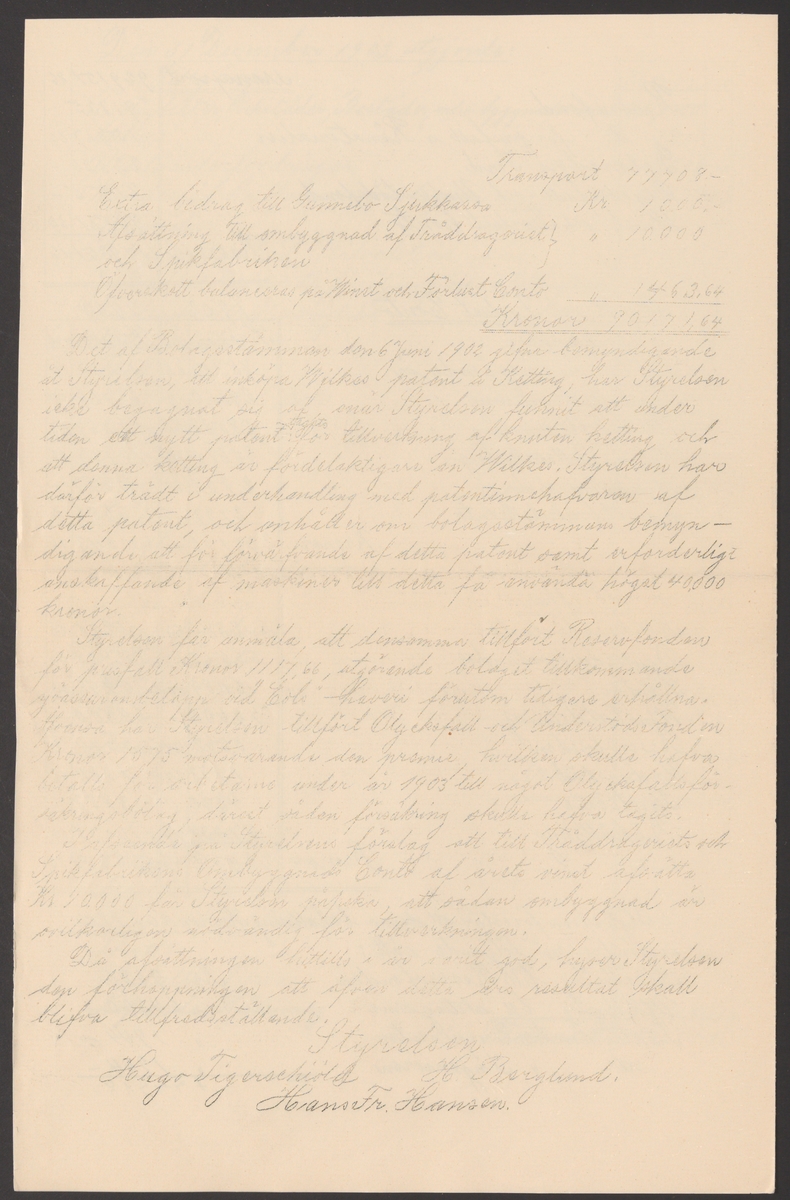 Transport 77708.-
Extra bidrag till Gunnebo Sjukkassa Kr 1000.-
Afsättning till ombyggnad af Tråddrageriet } „ 10000
och Spikfabriken
Öfverskott balanseras på Winst och Förlust Conto „ 1463,64
Kronor 90171,64
Det af Bolagsstämman den 6 Juni 1902 gifna bemyndigande
åt Styrelsen, att inköpa Wilkes patent å Ketting, har Styrelsen
icke begagnat sig af, enär Styrelsen funnit att under
tiden ett nytt patent för tillverkning af knuten ketting och
att denna ketting är fördelaktigare än Wilkes. Styrelsen har
därför trädt i underhandling med patentinnehafvaren af
detta patent, och anhåller om bolagsstämmans bemyn-
digande att för förvärfvande af detta patent samt erforderligt
anskaffande af maskiner till detta få använda högst 40,000
kronor.
Styrelsen får anmäla, att densamma tillfört Reservfonden
för Kronor 1117,66, utgörande bolaget tillkommande
vid haveri förutom tidigare erhållna.
har Styrelsen tillfört Olycksfall- och Understödsfonden
Kronor 1575 motsvarande den premie, hvilken skulle hafva
betalts för arbetarne under år 1903 till något Olycksfallsför-
säkringsbolag, därest sådan försäkring skulle hafva tagits.
på Styrelsens förslag att till Tråddrageriets och
Spikfabrikens Ombyggnads Conto af årets vinst afsätta
Kr 10,000 får Styrelsen påpeka, att sådan ombyggnad är
ovillkorligen nödvändig för tillverkningen.
Då afsättningen hittills i år varit god, hyser Styrelsen
den förhoppningen att äfven detta års resultat skall
blifva tillfredsställande.
Styrelsen
Hugo Tigerschiöld H Berglund.
Hans Fr. Hansen.